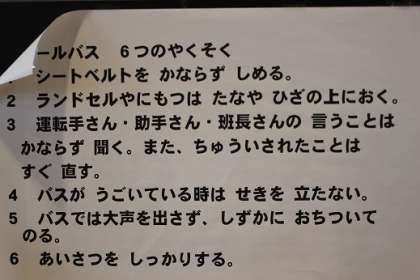 ールバス　6つのやくそく
シートベルトを かならず しめる。
2　ランドセルやにもつは たなや ひざの上におく。
3　運転手さん・助手さん・班長さんの 言うことは
かならず 聞く。また、ちゅういされたことは
すぐ 直す。
4　バスが うごいている時は せきを 立たない。
5　バスでは大声を出さず、しずかに おちついて
のる。
6　あいさつを しっかりする。